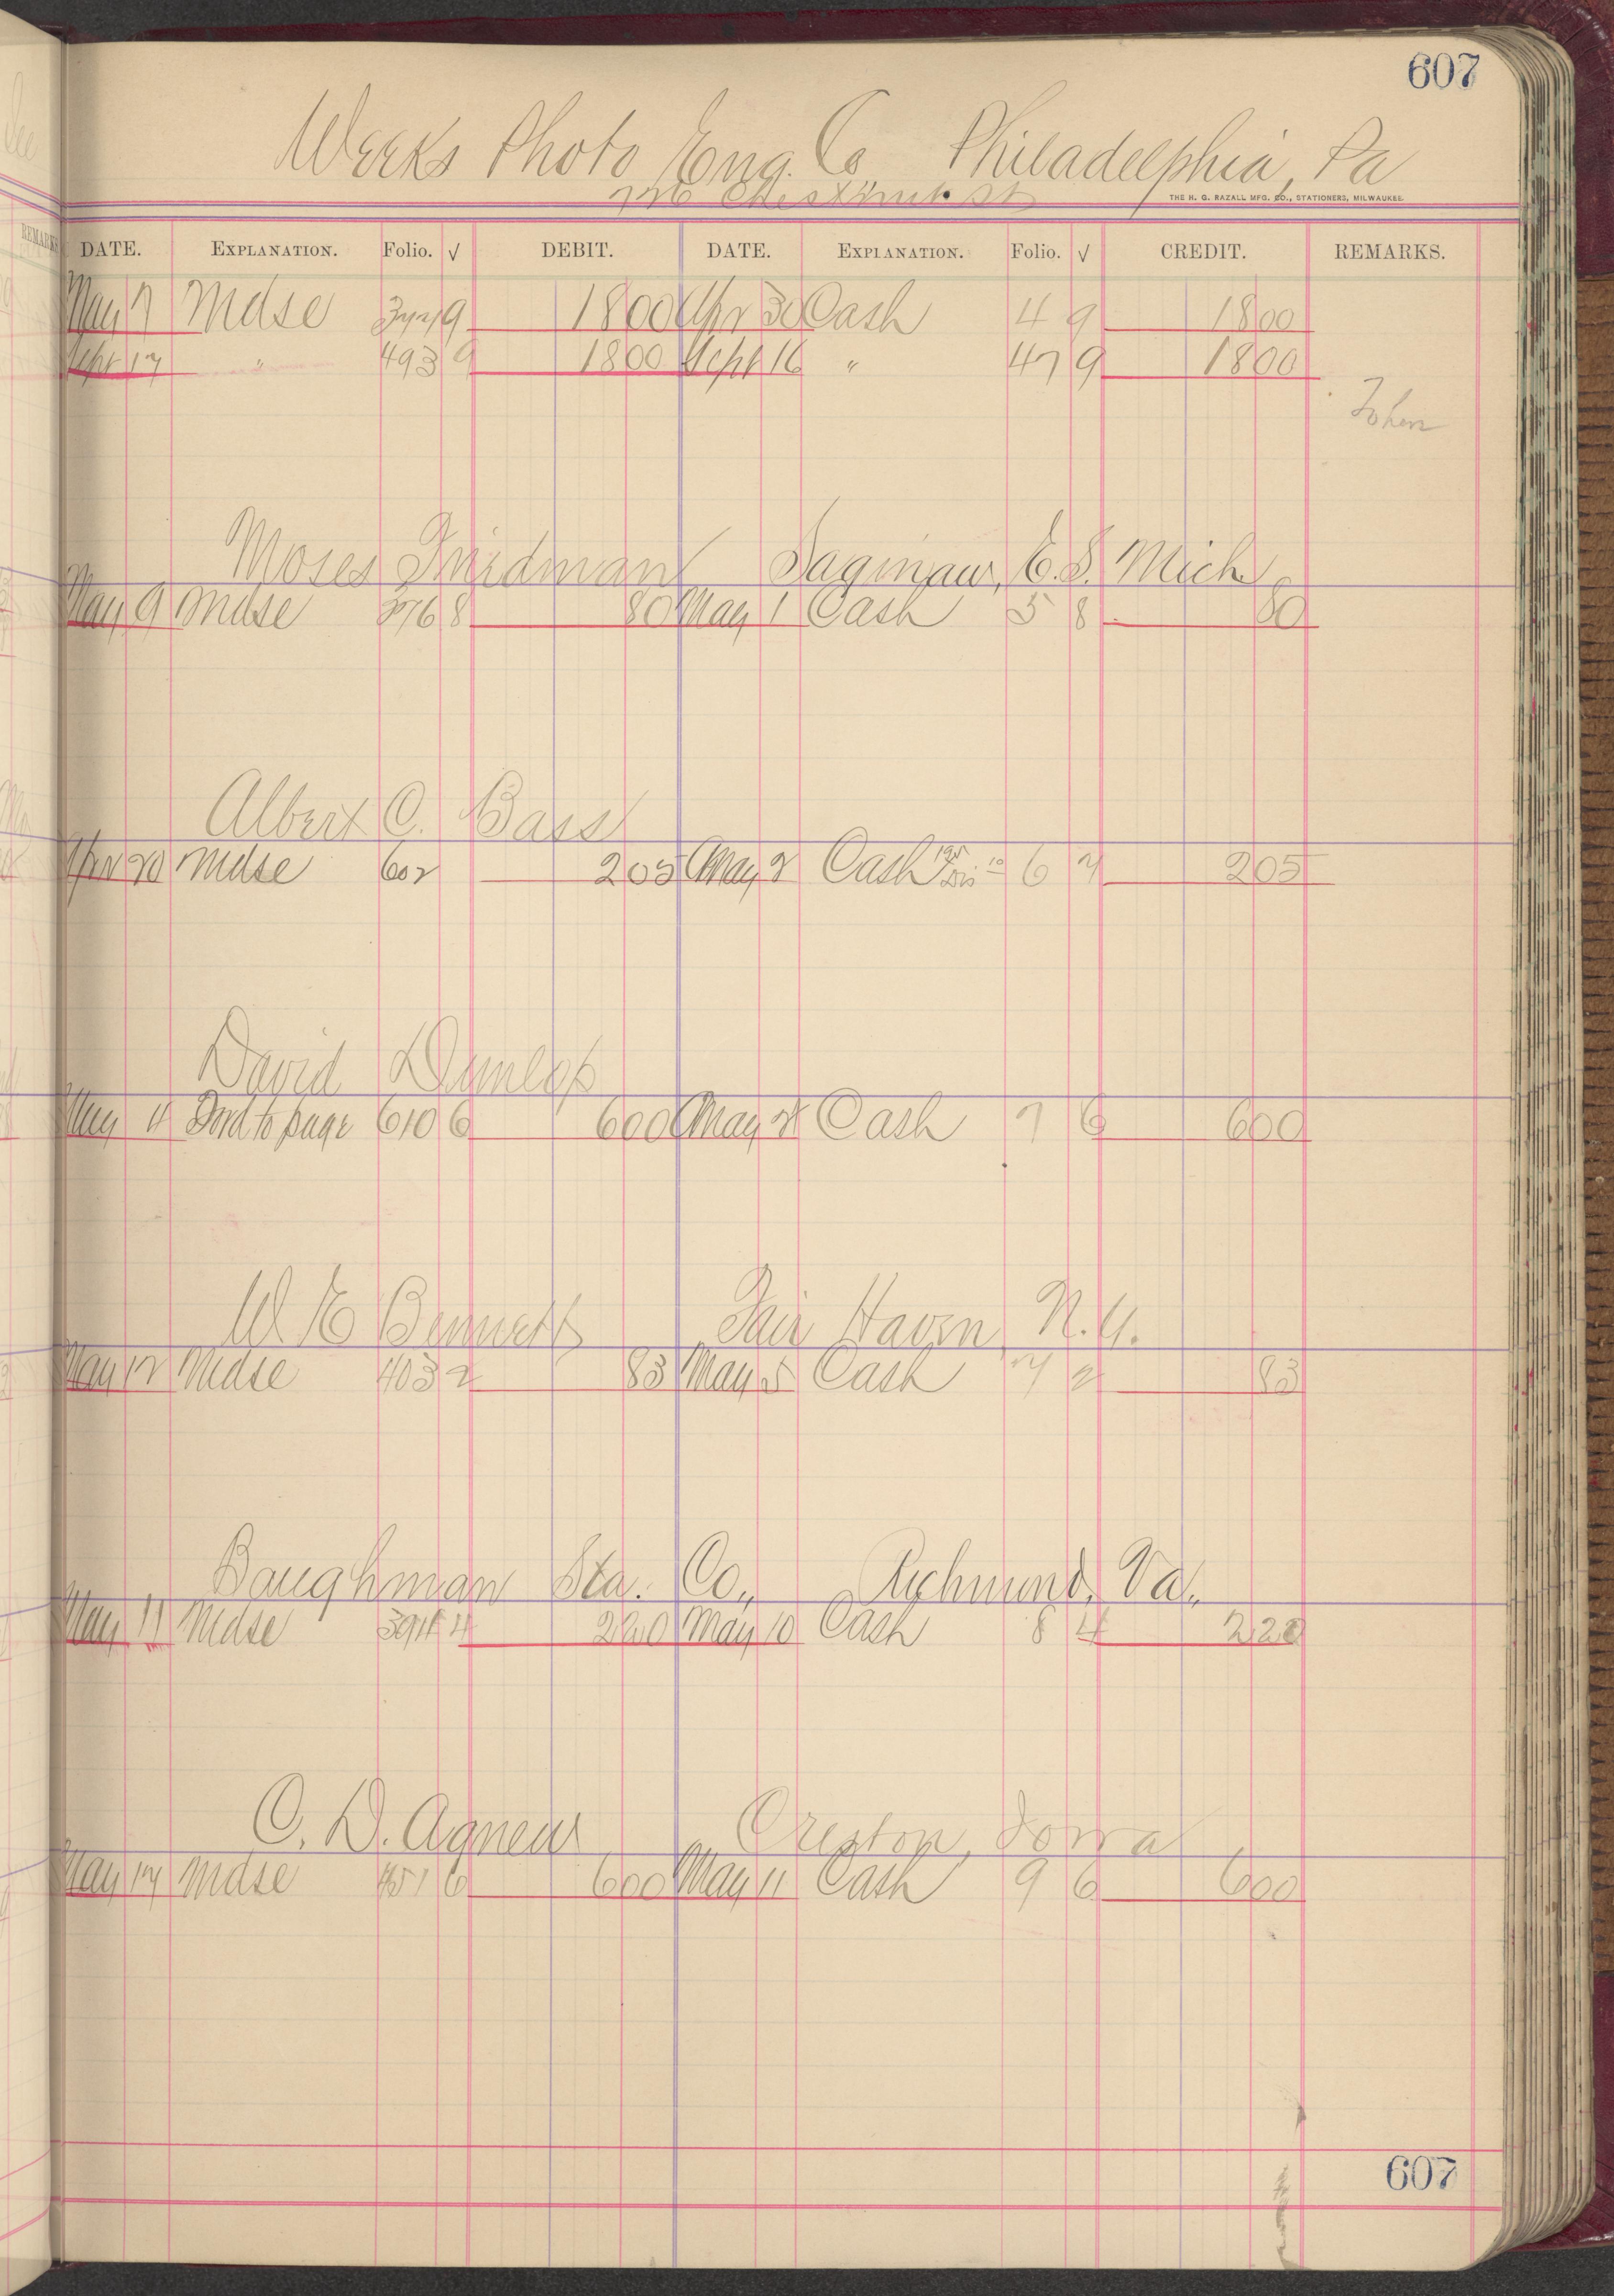 607
Weeks Photo Eng. Co. Philadelphia, Pa
726 Chestnut St
THE H. G. RAZALL MFG. CO., STATIONERS, MILWAUKEE.
DATE. EXPLANATION. Folio. √ DEBIT. DATE. EXPLANATION. Folio. √ CREDIT. REMARKS.
May 7 Mdse 372 9 1800 Apr 30 Cash 4 9 1800
Sept 17 " 493 9 1800 Sept 16 " 47 9 1800
Moses Friedman Saginaw, E.S. Mich
May 9 Mdse 376 8 80 May 1 Cash 5 8 80
Albert C. Bass
Apr 20 Mdse 602 205 May 2 Cash 195 Dis 10 6 7 205
David Dunlop
May 4 Ford to page 610 6 600 May 2 Cash 7 6 600
W E Bennett Fair Haven, N.Y.
May 12 Mdse 403 2 83 May 5 Cash 7 2 83
Baughman Sta. Co., Richmond, Va.,
May 11 Mdse 391 4 220 May 10 Cash 8 4 220
C. D. Agnew Creston, Iowa
May 17 Mdse 451 6 600 May 11 Cash 9 6 600
607